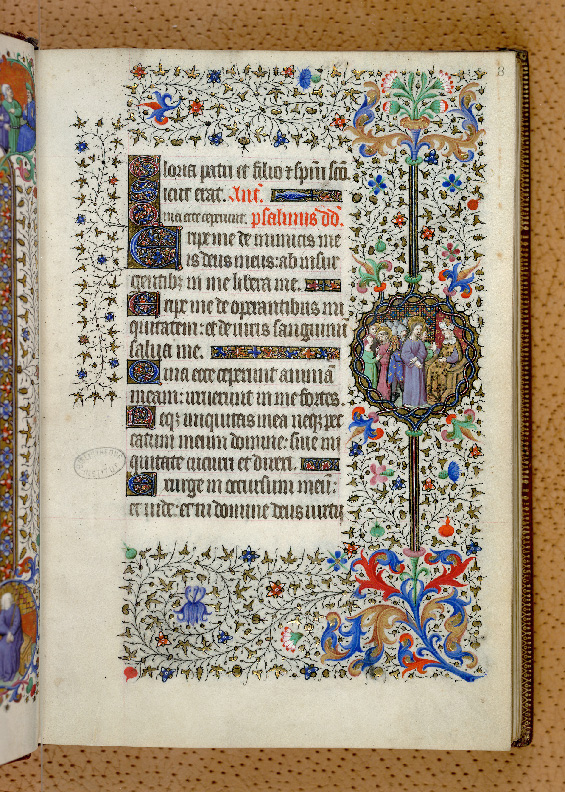 Gloria patri et filio et spiritui sancto
Sicut erat. Ant.
Quia ecce ceperunt. psalmus dd.
Eripe me de inimicis me
is deus meus: ab insur
gentibus in me libera me.
Eripe me de operantibus ini
quitatem: et de viris sanguinum
salva me.
Quia ecce ceperunt animam
meam: irruerunt in me fortes.
Neque iniquitas mea neque pec
catum meum domine: sine ini
quitate cucurri et direxi.
Exurge in occursum meum:
et vide: et tu domine deus virtu